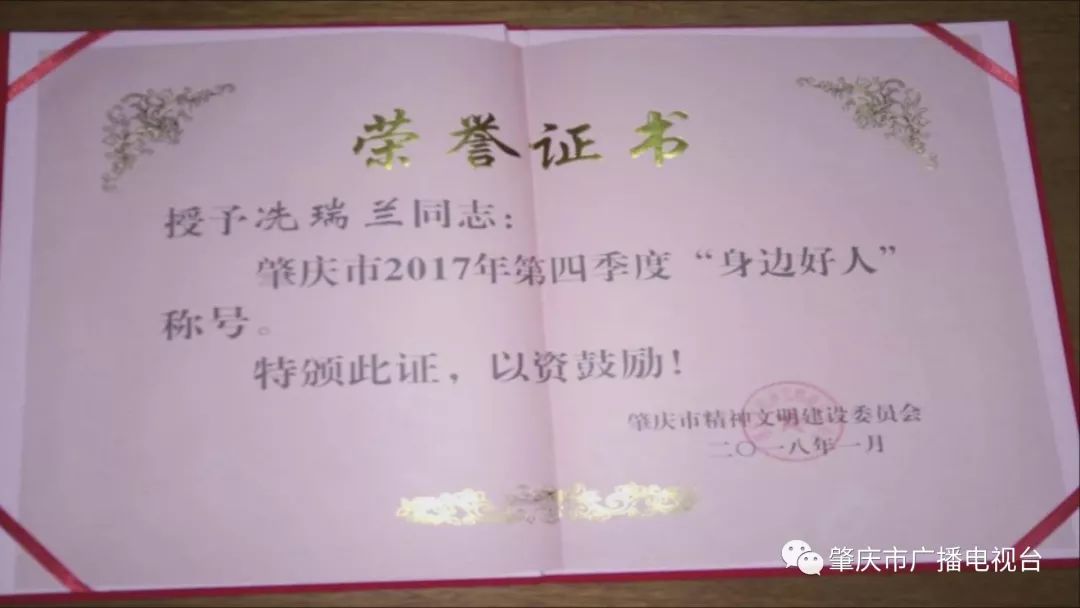 荣誉证书
授予冼瑞兰同志：
肇庆市2017年第四季度“身边好人”
称号。
特颁此证，以资鼓励！
肇庆市精神文明建设委员会
二〇一八年一月
肇庆市广播电视台